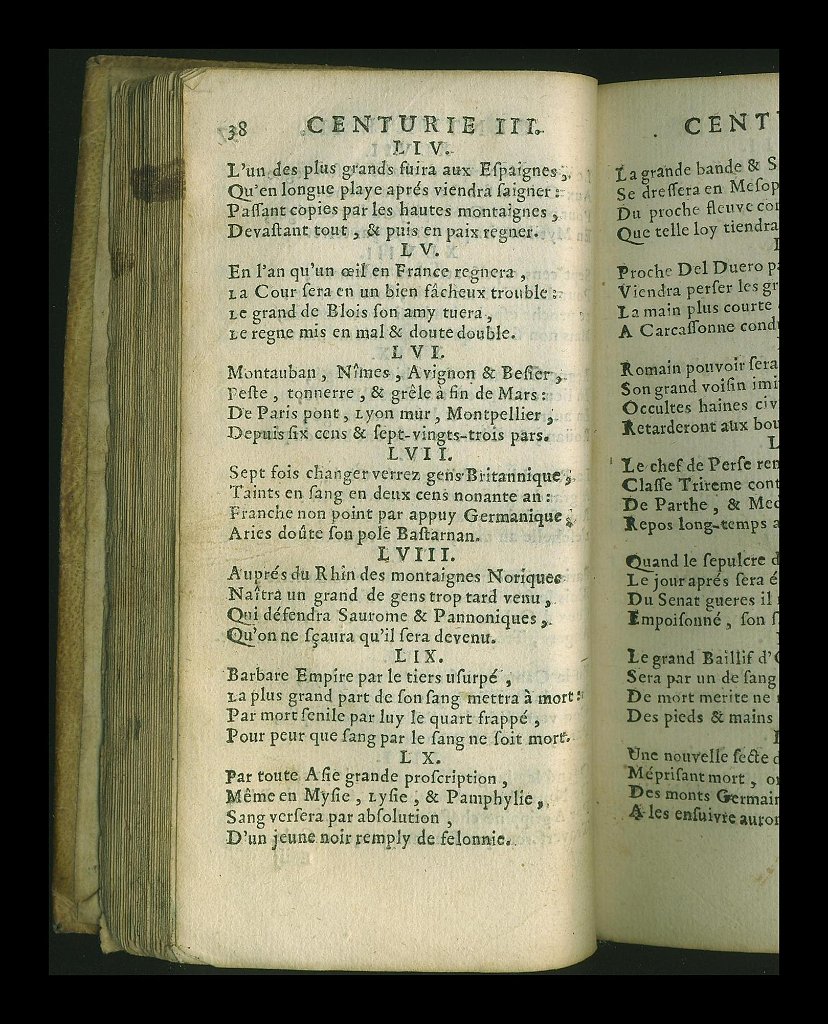 38 CENTURIE III.
LIV.
L'un des plus grands fuira aux Eſpaignes,
Qu'en longue playe aprés viendra ſaigner :
Paſſant copies par les hautes montaignes,
Devaſtant tout, & puis en paix regner.
LV.
En l'an qu'un œil en France regnera,
La Cour ſera en un bien fâcheux trouble :
Le grand de Blois ſon amy tuera,
Le regne mis en mal & doute double.
LVI.
Montauban, Nîmes, Avignon & Beſier,
Peſte, tonnerre, & grêle à fin de Mars :
De Paris pont, Lyon mur, Montpellier,
Depuis ſix cens & ſept-vingts-trois pars.
LVII.
Sept fois changer verrez gens Britannique,
Taints en ſang en deux cens nonante an :
Franche non point par appuy Germanique,
Aries doûte ſon pole Baſtarnan.
LVIII.
Auprés du Rhin des montaignes Noriques
Naîtra un grand de gens trop tard venu,
Qui défendra Saurome & Pannoniques,
Qu'on ne ſçaura qu'il ſera devenu.
LIX.
Barbare Empire par le tiers uſurpé,
La plus grand part de ſon ſang mettra à mort :
Par mort ſenile par luy le quart frappé,
Pour peur que ſang par le ſang ne ſoit mort.
LX.
Par toute Aſie grande proſcription,
Même en Myſie, Lyſie, & Pamphylie,
Sang verſera par abſolution,
D'un jeune noir remply de felonnie.
CENT
La grande bande & S
Se dreſſera en Meſop
Du proche fleuve cor
Que telle loy tiendra
Proche Del Duero p
Viendra perſer les gr
La main plus courte
A Carcaſſonne cond
Romain pouvoir ſera
Son grand voiſin imi
Occultes haines civ
Retarderont aux bou
L
Le chef de Perſe ren
Claſſe Trireme cont
De Parthe, & Med
Repos long-temps a
Quand le ſepulcre d
Le jour aprés ſera é
Du Senat gueres il
Empoiſonné, ſon ſ
Le grand Baillif d'
Sera par un de ſang
De mort merite ne
Des pieds & mains
Une nouvelle ſecte d
Mépriſant mort, o
Des monts Germain
A les enſuivre auron